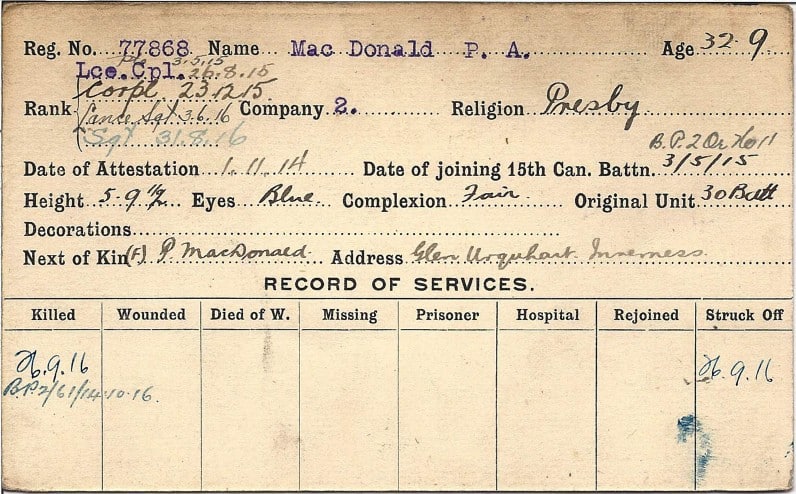 Reg. No. 77868 Name Mac Donald P. A. Age 32-9
Pte 3.5.15
Lce.Cpl. 26.8.15
Corpl 23.12.15
Rank Lance Sgt 3.6.16 Company 2. Religion Presby
Sgt 31.8.16
B.P.2 Or
Date of Attestation 1.11.14 Date of joining 15th Can. Battn. 3/5/15
Height 5-9 1/2 Eyes Blue Complexion Fair Original Unit 30 Batt
Decorations
Next of Kin (F) P. MacDonald Address Glen Urquhart. Inverness
RECORD OF SERVICES.
Killed Wounded Died of W. Missing Prisoner Hospital Rejoined Struck Off
26.9.16 26.9.16
B.P.2/61/14.10.16.